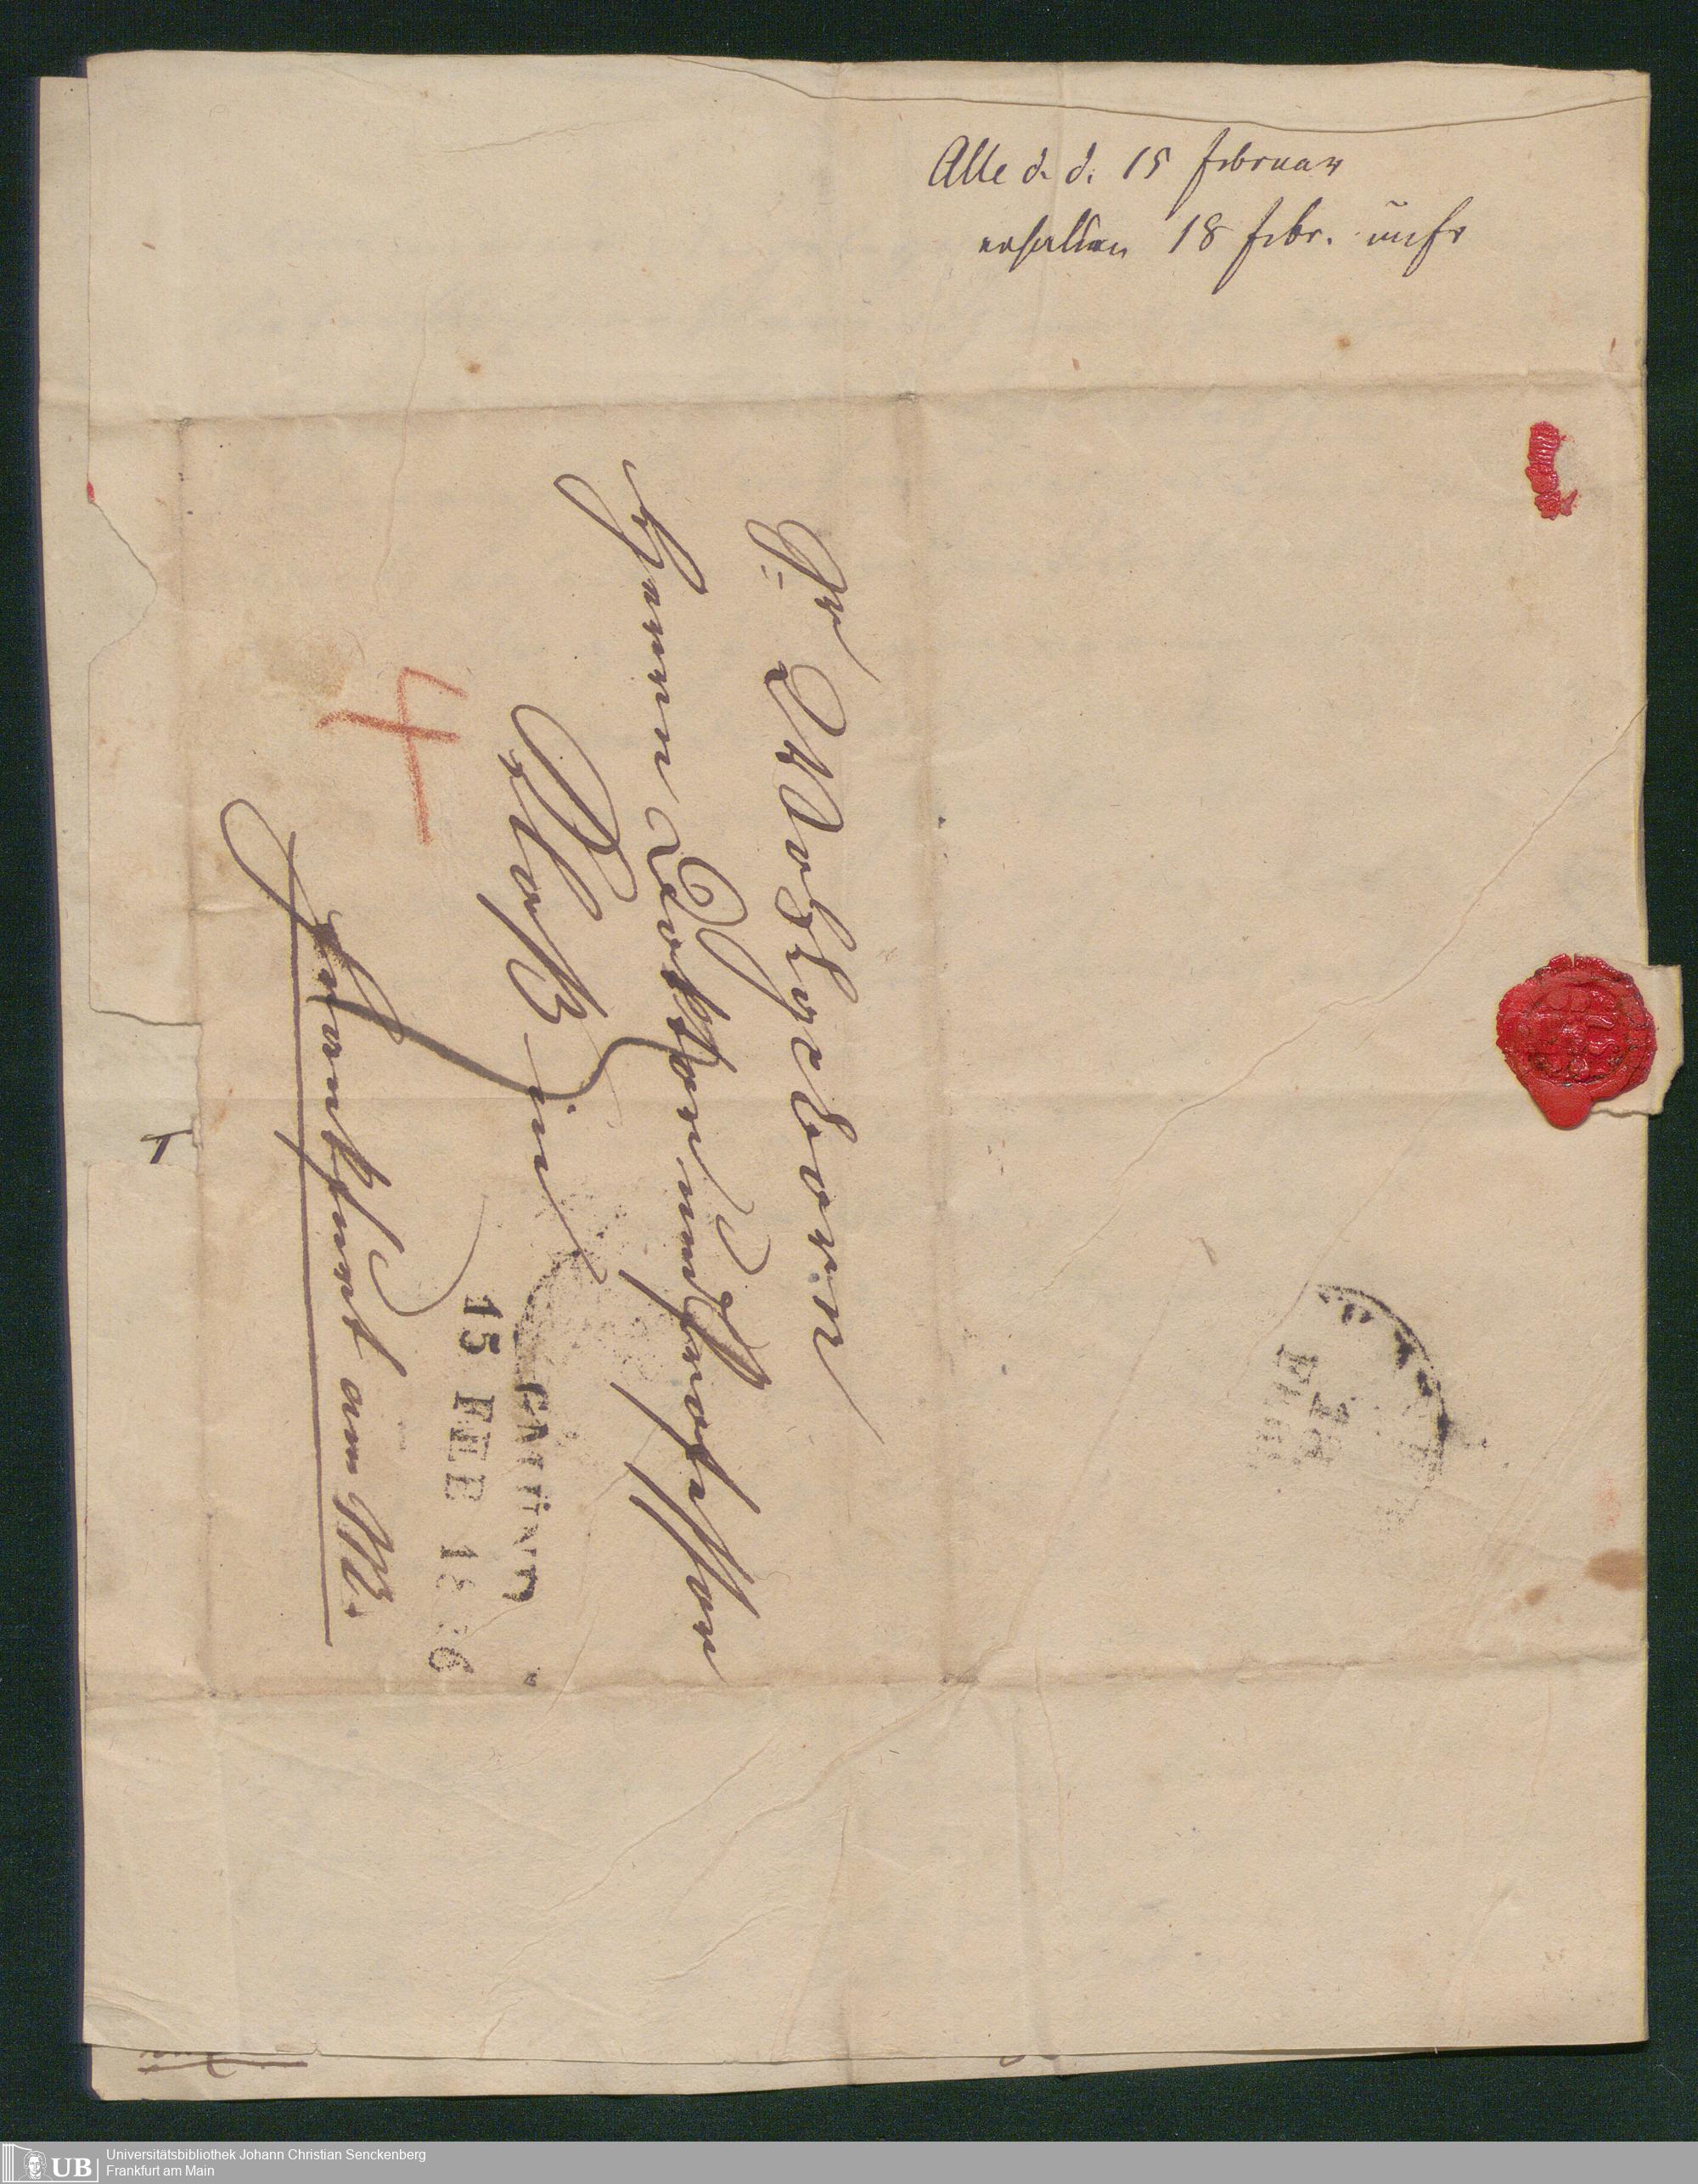 Alle d. d. 15 Februar
erhalten 18 Febr.
Sr Wohlgeborn
Herrn Doktor und Professor
in
Frankfurt am M.
4
15 FEB 18 6
18
UB
Universitätsbibliothek Johann Christian Senckenberg
Frankfurt am Main